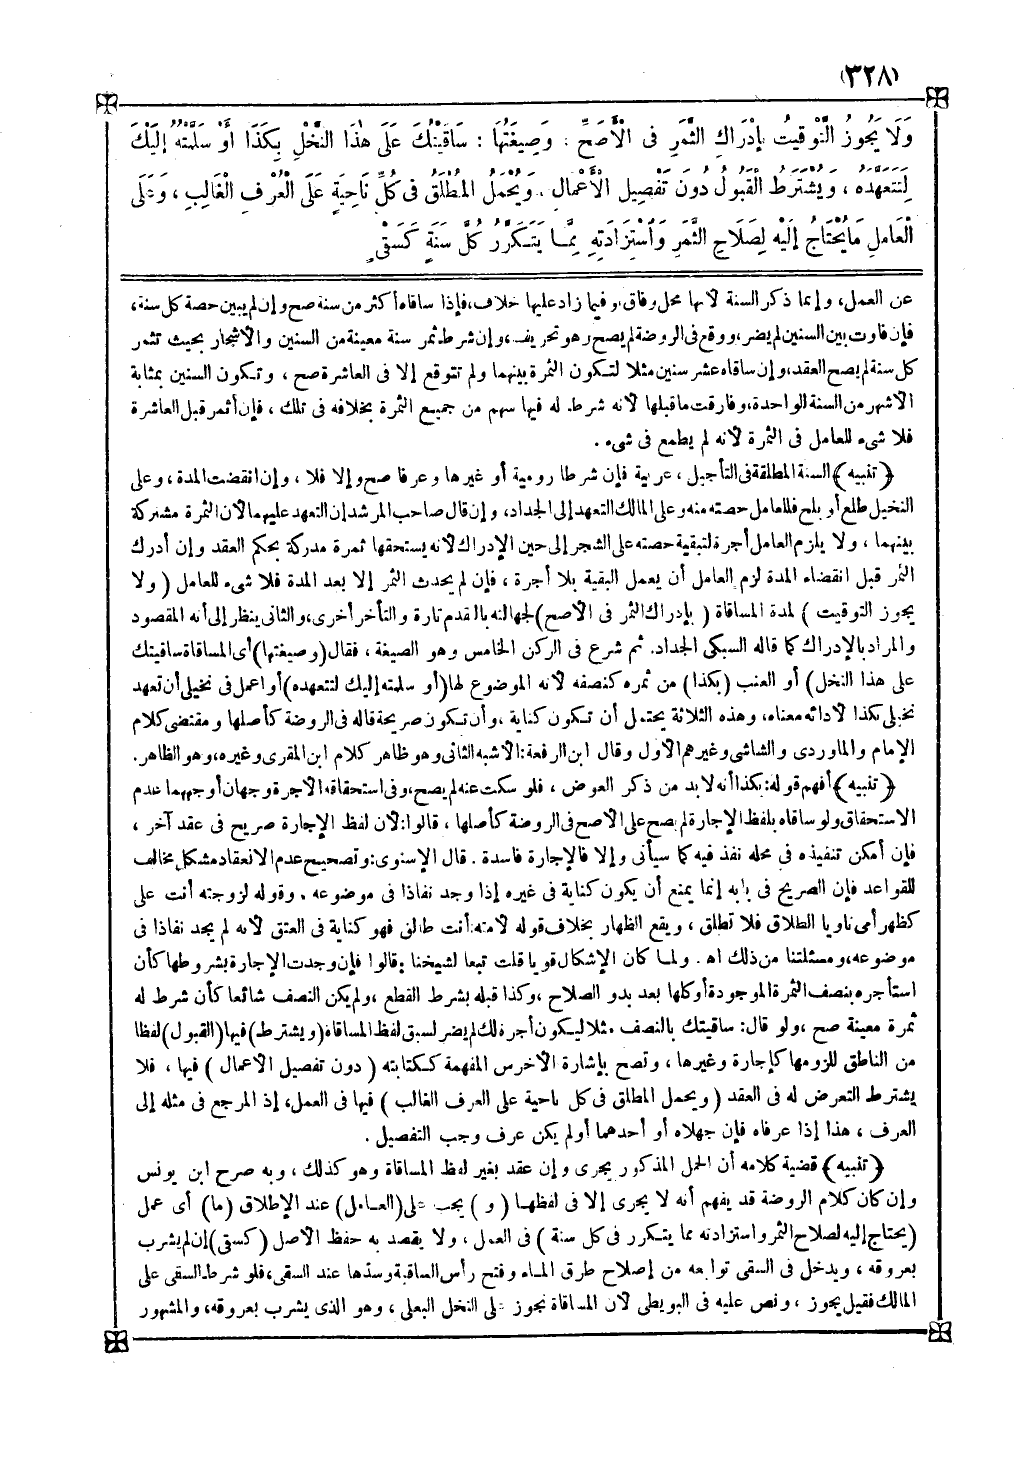 (٣٢٨)
وَلَا يَجُوزُ التَّوْقِيتُ بِإِدْرَاكِ الثَّمَرِ فِى الْأَصَحِّ . وَصِيغَتُهَا : سَاقَيْتُكَ عَلَى هٰذَا النَّخْلِ بِكَذَا أَوْ سَلَّمْتُهُ إِلَيْكَ
لِتَتَعَهَّدَهُ ، وَيُشْتَرَطُ الْقَبُولُ دُونَ تَفْصِيلِ الْأَعْمَالِ . وَيُحْمَلُ الْمُطْلَقُ فِى كُلِّ نَاحِيَةٍ عَلَى الْعُرْفِ الْغَالِبِ ، وَعَلَى
الْعَامِلِ مَا يُحْتَاجُ إِلَيْهِ لِصَلَاحِ الثَّمَرِ وَاسْتِزَادَتِهِ مِمَّا يَتَكَرَّرُ كُلَّ سَنَةٍ كَسَقْىٍ
عن العمل، وإنما ذكر السنة لأنها محل وفاق، وفيما زاد عليها خلاف، فإذا ساقاه أكثر من سنة صح وإن لم يبين حصة كل سنة،
فإن فاوت بين السنين لم يضر، ووقع فى الروضة لم يصح وهو تحريف، وإن شرط ثمر سنة معينة من السنين والأشجار بحيث تثمر
كل سنة لم يصح العقد، وإن ساقاه عشر سنين مثلا لتكون الثمرة بينهما ولم تتوقع إلا فى العاشرة صح ، وتكون السنين بمثابة
الأشهر من السنة الواحدة، وفارقت ما قبلها لأنه شرط له فيها سهم من جميع الثمرة بخلافه فى تلك ، فإن أثمر قبل العاشرة
فلا شىء للعامل فى الثمرة لأنه لم يطمع فى شىء .
﴿ تنبيه ﴾ السنة المطلقة فى التأجيل ، عربية فإن شرطا رومية أو غيرها وعرفا صح وإلا فلا ، وإن انقضت المدة ، وعلى
النخيل طلع أو بلح فللعامل حصته منه وعلى المالك التعهد إلى الجداد، وإن قال صاحب المرشد إن التعهد عليهما لأن الثمرة مشتركة
بينهما ، ولا يلزم العامل أجرة لتبقية حصته على الشجر إلى حين الإدراك لأنه يستحقها ثمرة مدركة بحكم العقد وإن أدرك
الثمر قبل انقضاء المدة لزم العامل أن يعمل البقية بلا أجرة ، فإن لم يحدث الثمر إلا بعد المدة فلا شىء للعامل ( ولا
يجوز التوقيت ) لمدة المساقاة ( بإدراك الثمر فى الأصح) لجهالته بالتقدم تارة والتأخر أخرى، والثانى ينظر إلى أنه المقصود
والمراد بالإدراك كما قاله السبكى الجداد. ثم شرع فى الركن الخامس وهو الصيغة ، فقال (وصيغتها) أى المساقاة ساقيتك
على هذا النخل) أو العنب (بكذا) من ثمره كنصفه لأنه الموضوع لها (أو سلمته إليك لتتعهده) أو اعمل فى نخيلى أن تعهد
نخيلى بكذا لأدائه معناه، وهذه الثلاثة يحتمل أن تكون كناية ، وأن تكون صريحة قاله فى الروضة كأصلها ومقتضى كلام
الإمام والماوردى والشاشى وغيرهم الأول وقال ابن الرفعة: الأشبه الثانى وهو ظاهر كلام ابن المقرى وغيره، وهو الظاهر.
﴿ تنبيه ﴾ أفهم قوله: بكذا أنه لا بد من ذكر العوض ، فلو سكت عنه لم يصح، وفى استحقاقه الأجرة وجهان أوجههما عدم
الاستحقاق ولو ساقاه بلفظ الإجارة لم يصح على الأصح فى الروضة كأصلها ، قالوا: لأن لفظ الإجارة صريح فى عقد آخر ،
فإن أمكن تنفيذه فى محله نفذ فيه كما سيأتى وإلا فالإجارة فاسدة . قال الإسنوى: وتصحيح عدم الانعقاد مشكل مخالف
للقواعد فإن الصريح فى بابه إنما يمنع أن يكون كناية فى غيره إذا وجد نفاذا فى موضوعه . وقوله لزوجته أنت على
كظهر أمى ناويا الطلاق فلا تطلق ، ويقع الظهار بخلاف قوله لأمته: أنت طالق فهو كناية فى العتق لأنه لم يجد نفاذا فى
موضوعه، ومسئلتنا من ذلك اه . ولما كان الإشكال قويا قلت تبعا لشيخنا : قالوا فإن وجدت الإجارة بشروطها كأن
استأجره بنصف الثمرة الموجودة أو كلها بعد بدو الصلاح ، وكذا قبله بشرط القطع ، ولم يكن النصف شائعا كأن شرط له
ثمرة معينة صح ، ولو قال: ساقيتك بالنصف مثلا ليكون أجرة لك لم يضر لسبق لفظ المساقاة (ويشترط) فيها (القبول) لفظا
من الناطق للزومها كإجارة وغيرها ، وتصح بإشارة الأخرس المفهمة ككتابته ( دون تفصيل الأعمال ) فيها ، فلا
يشترط التعرض له فى العقد ( ويحمل المطلق فى كل ناحية على العرف الغالب ) فيها فى العمل، إذ المرجع فى مثله إلى
العرف ، هذا إذا عرفاه فإن جهلاه أو أحدهما أو لم يكن عرف وجب التفصيل .
﴿ تنبيه ﴾ قضية كلامه أن الحمل المذكور يجرى وإن عقد بغير لفظ المساقاة وهو كذلك ، وبه صرح ابن يونس
وإن كان كلام الروضة قد يفهم أنه لا يجرى إلا فى لفظها ( و ) يجب على (العامل) عند الإطلاق (ما) أى عمل
(يحتاج إليه لصلاح الثمر واستزادته مما يتكرر فى كل سنة ) فى العمل ، ولا يقصد به حفظ الأصل (كسقى) إن لم يشرب
بعروقه ، ويدخل فى السقى توابعه من إصلاح طرق الماء وفتح رأس الساقية وسدها عند السقى، فلو شرط السقى على
المالك فقيل يجوز ، ونص عليه فى البويطى لأن المساقاة تجوز على النخل البعلى ، وهو الذى يشرب بعروقه، والمشهور